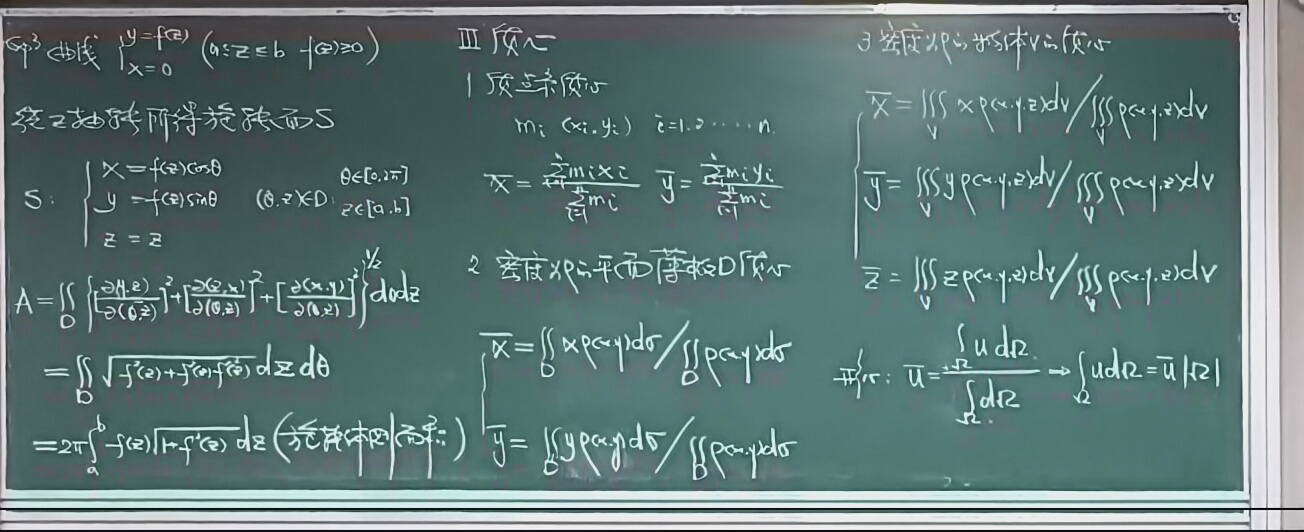 Eg.3 曲线 { y=f(z) x=0 (a≤z≤b f(z)≥0)
绕z轴旋转所得旋转面S
S: { x=f(z)cosθ
y=f(z)sinθ (θ,z)∈D: θ∈[0,2π] z∈[a,b]
z=z
A=∬_D {[∂(y,z)/∂(θ,z)]²+[∂(z,x)/∂(θ,z)]²+[∂(x,y)/∂(θ,z)]²}^{1/2} dθdz
=∬_D √(f²(z)+f²(z)f'²(z)) dzdθ
=2π∫_a^b f(z)√(1+f'²(z)) dz (旋转体
III 质心
1 质点系质心
m_i (x_i,y_i) i=1,2·····n.
x̄=∑_{i=1}^n m_i x_i / ∑_{i=1}^n m_i ȳ=∑_{i=1}^n m_i y_i / ∑_{i=1}^n m_i
2 密度为ρ的平面薄板D质心
{ x̄=∬_D xρ(x,y)dσ / ∬_D ρ(x,y)dσ
ȳ=∬_D yρ(x,y)dσ / ∬_D ρ(x,y)dσ
3 密度为ρ的物体V的质心
{ x̄=∭_V xρ(x,y,z)dV / ∭_V ρ(x,y,z)dV
ȳ=∭_V yρ(x,y,z)dV / ∭_V ρ(x,y,z)dV
z̄=∭_V zρ(x,y,z)dV / ∭_V ρ(x,y,z)dV
形心: ū=∫_Ω u dΩ / ∫_Ω dΩ → ∫_Ω u dΩ=ū|Ω|